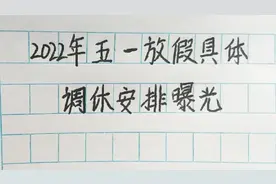 2022年五一放假具体
调休安排曝光